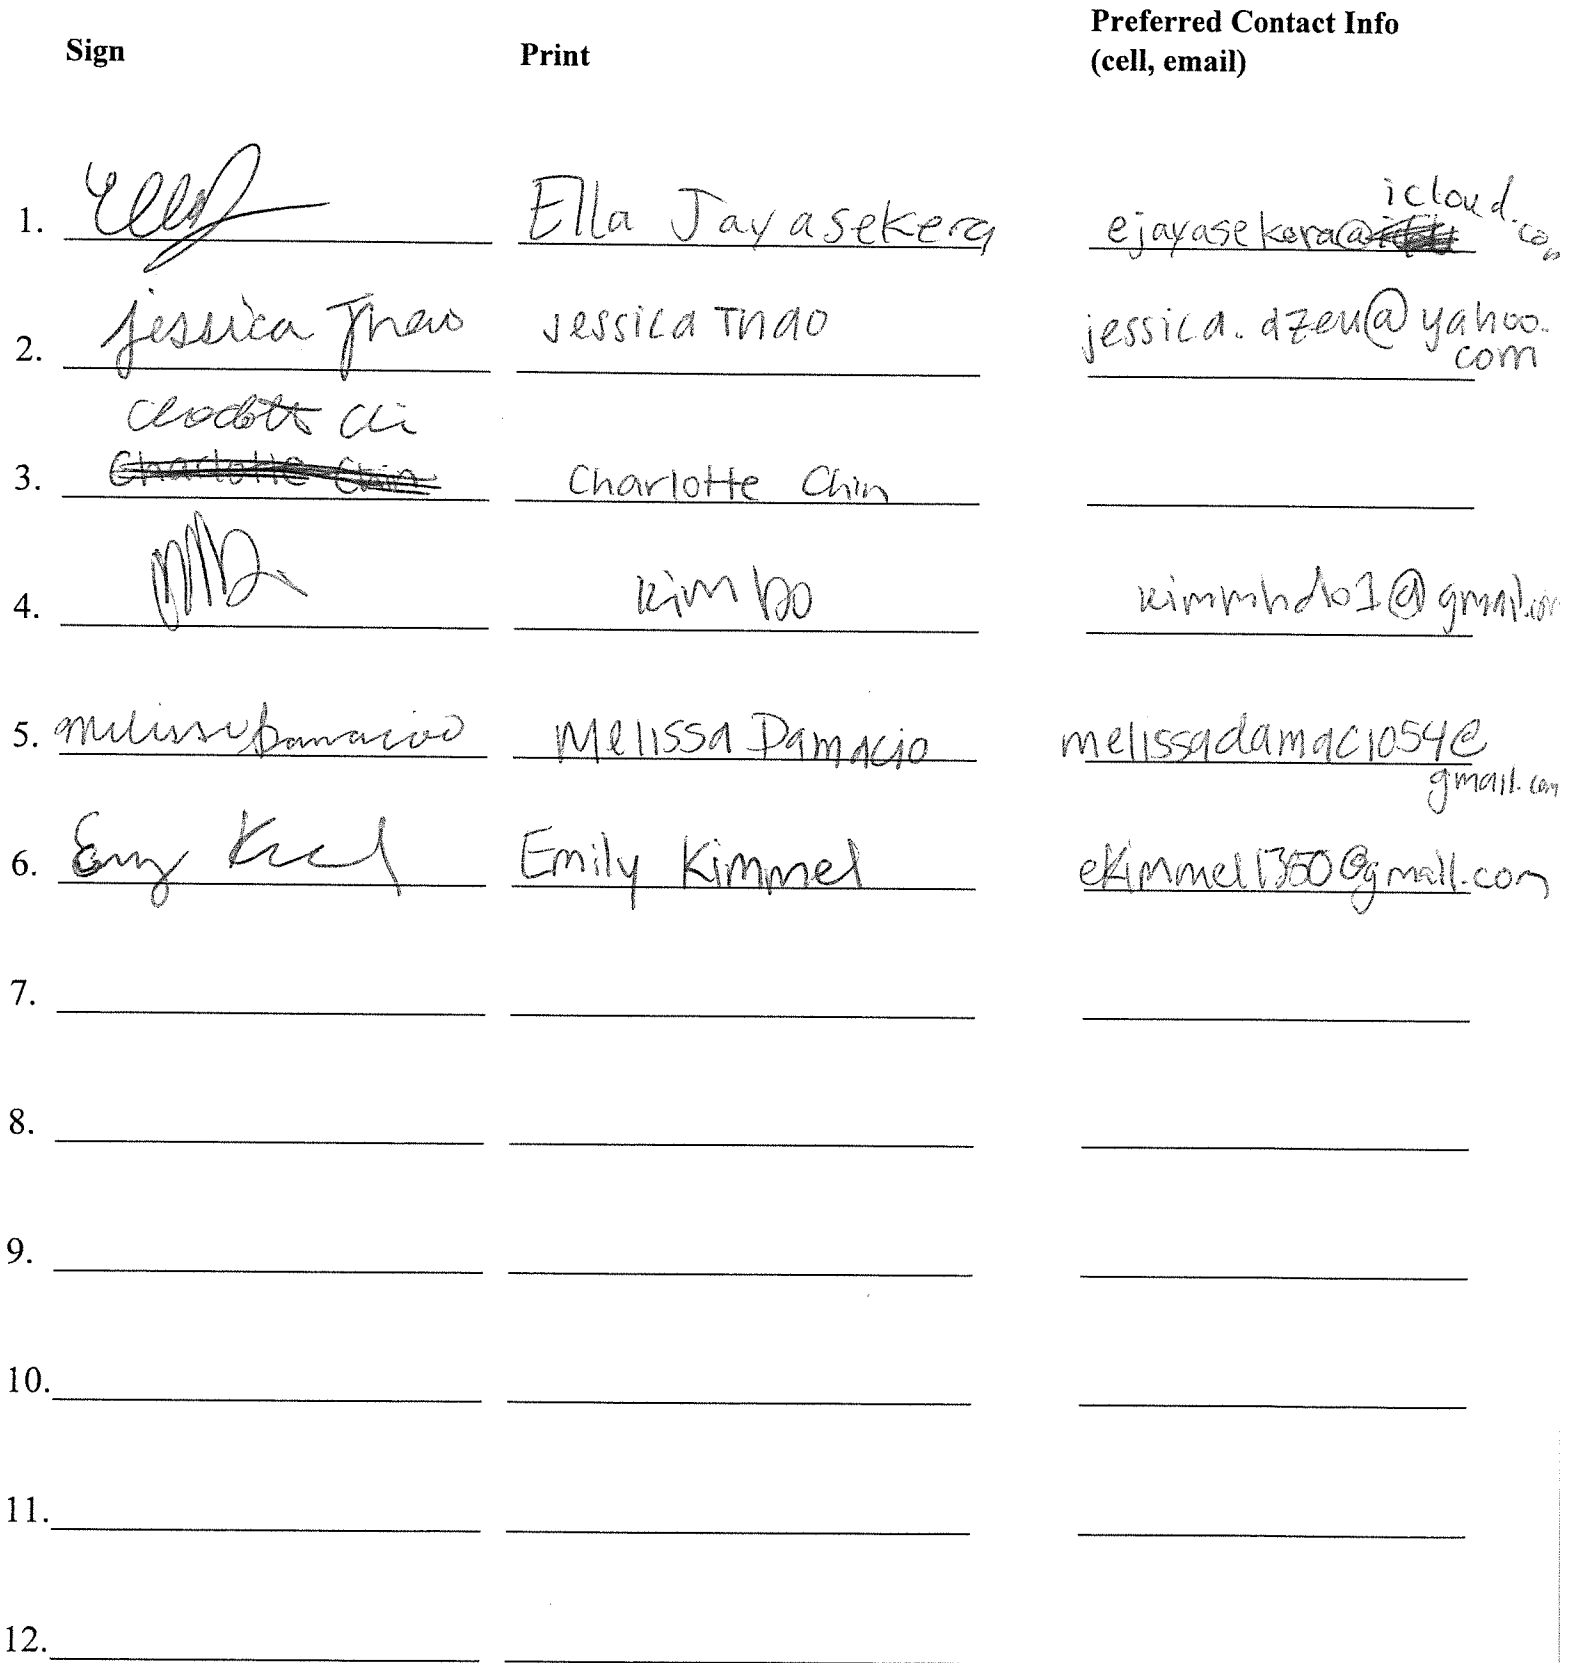 Sign Print Preferred Contact Info
(cell, email)
1. Ella Jayasekera ejayasekera@icloud.com
2. jessica Thao jessica Thao jessica.dzeu@yahoo.
com
3. Charlotte Chin Charlotte Chin
4. Kim Do kimmhdo1@gmail.com
5. Melissa Damacio Melissa Damacio melissadamacio54@
gmail.com
6. Emily Kimmel ekimmel1350@gmail.com
7.
8.
9.
10.
11.
12.